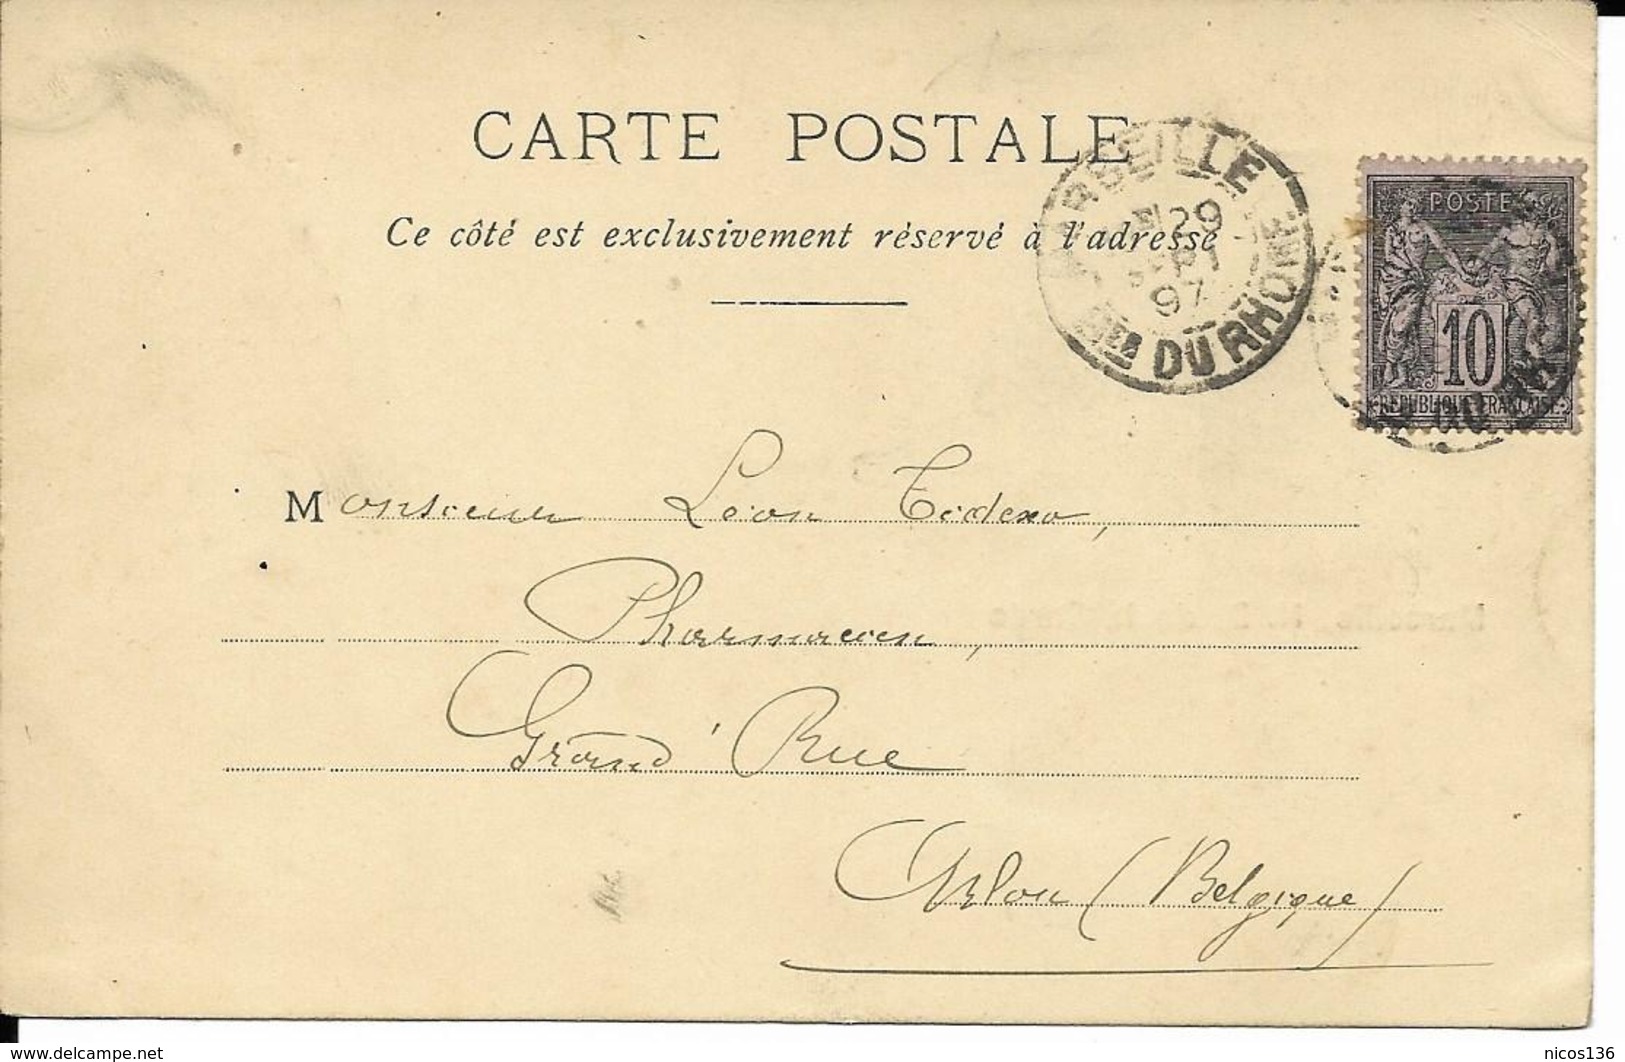 CARTE POSTALE
Ce côté est exclusivement réservé à l'adresse
MARSEILLE
29
SEPT
97
BCHES DU RHONE
POSTE
10
REPUBLIQUE FRANÇAISE
Monsieur Léon
Pharmacien,
Grand' Rue
Arlon (Belgique)
www.delcampe.net
nicos136